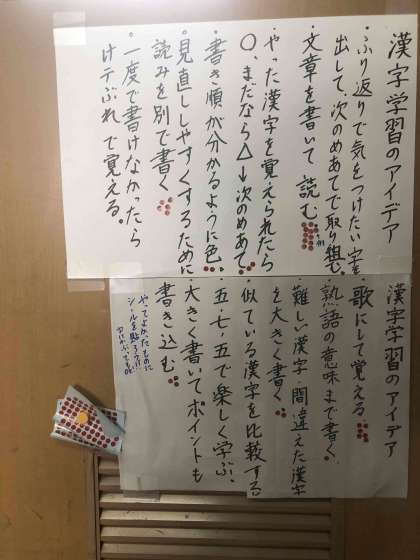 漢字学習のアイデア
・ふり返りで気をつけたい字を
出して、次のめあてで取り組む。
・文章を書いて読む
・やった漢字を覚えられたら
○、まだなら△→次のめあて
・書き順が分かるように色。
・見直ししやすくするために
読みを別で書く
・一度で書けなかったら
けテぶれで覚える。
漢字学習のアイデア
・歌にして覚える
・熟語の意味まで書く。
・難しい漢字・間違えた漢字
を大きく書く
・似ている漢字を比較する
・五・七・五で楽しく学ぶ。
・大きく書いてポイントも
書き込む
やってよかったものに
シールを貼ろう!!